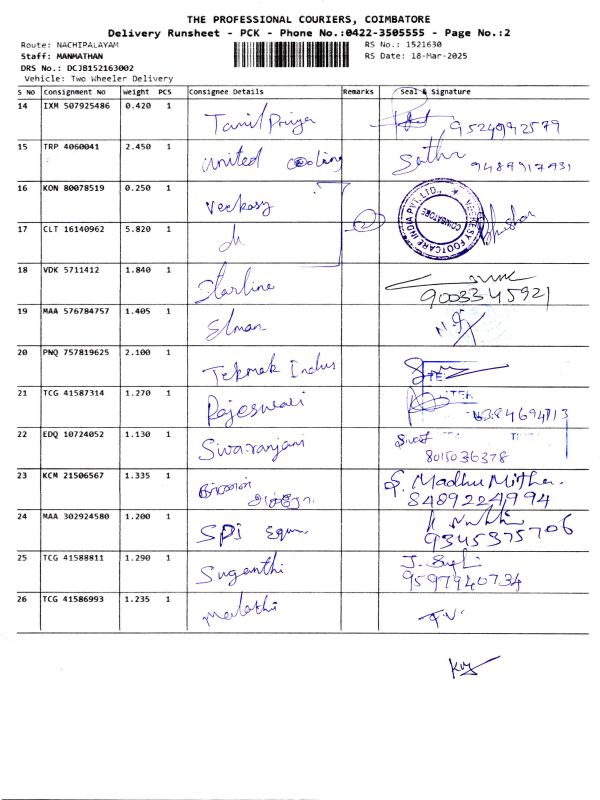 THE PROFESSIONAL COURIERS, COIMBATORE
Delivery Runsheet - PCK - Phone No.:0422-3505555 - Page No.:2
Route: NACHIPALAYAM RS No.: 1521630
Staff: MANMATHAN RS Date: 18-Mar-2025
DRS No.: DCJB152163002
Vehicle: Two Wheeler Delivery
S No Consignment No Weight PCS Consignee Details Remarks Seal & Signature
14 IXM 507925486 0.420 1 Tamil Priya 9524992579
15 TRP 4060041 2.450 1 United Cooling Sathi 9489917931
16 KON 80078519 0.250 1 Veekesy
VEEKESY FOOTCARE INDIA PVT. LTD., COIMBATORE
17 CLT 16140962 5.820 1 2
18 VDK 5711412 1.840 1 Starline 9003345921
19 MAA 576784757 1.405 1 Elman
20 PNQ 757819625 2.100 1 Tekmak Indus
21 TCG 41587314 1.270 1 Rajeswari
22 EDQ 10724052 1.130 1 Sivaranjani 8015036378
23 KCM 21506567 1.335 1 S. Madhu Mitha. 8489224994
24 MAA 302924580 1.200 1 SPI Equn. 9345375706
25 TCG 41588811 1.290 1 Suganthi 9597940734
26 TCG 41586993 1.235 1 Malathi